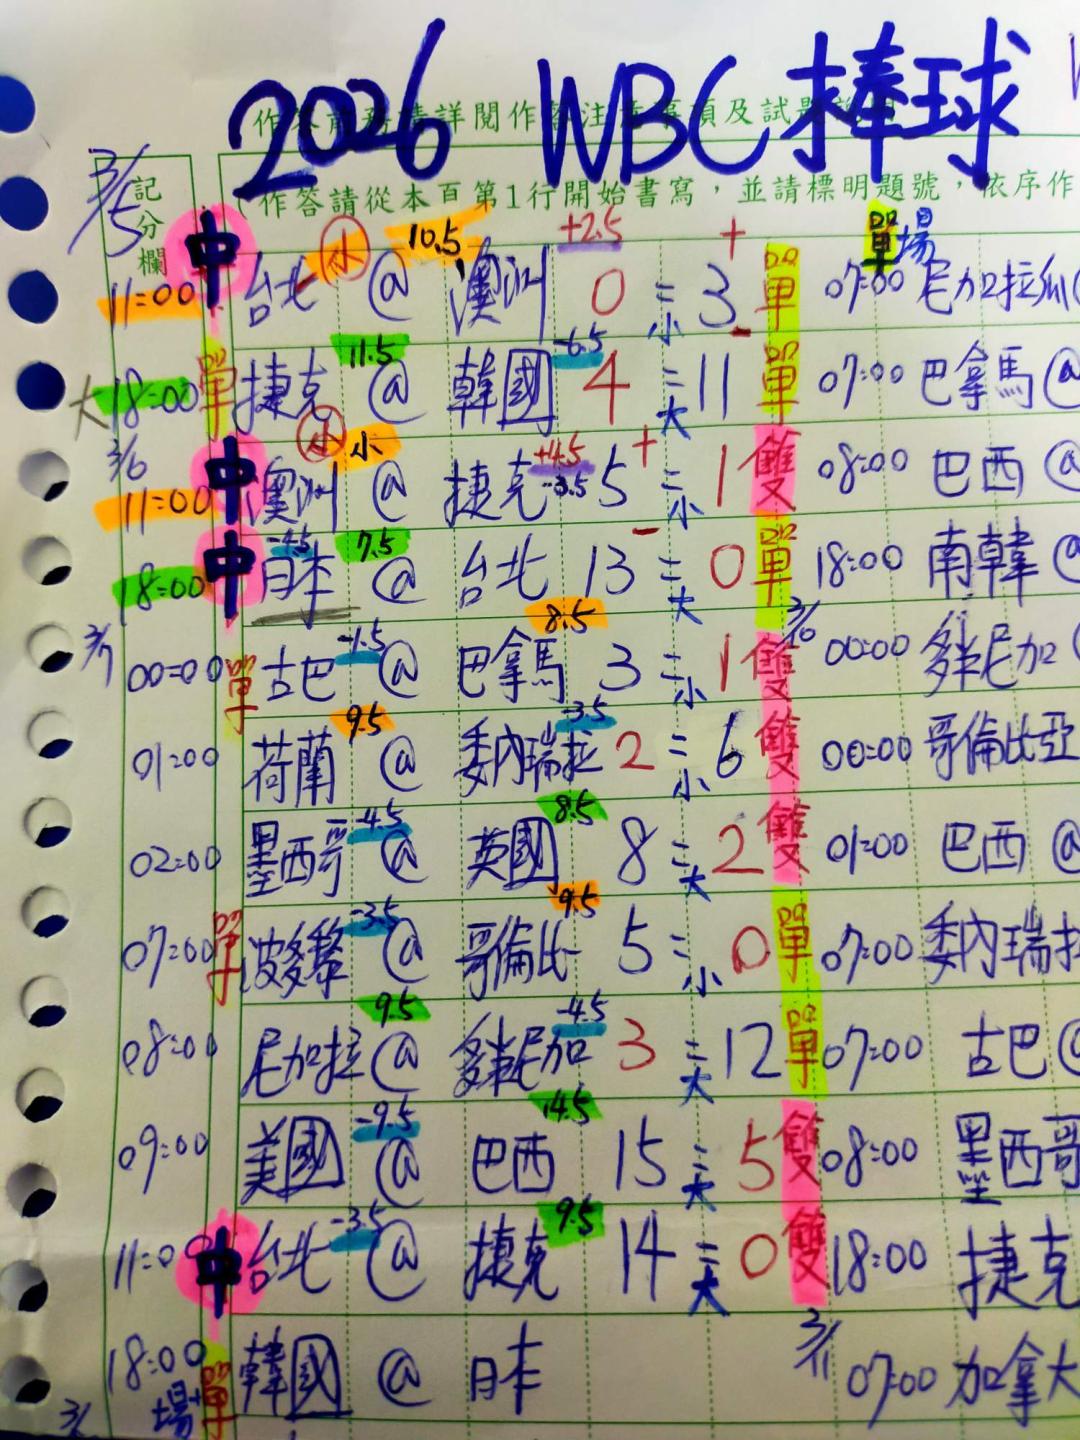 2026 WBC棒球
作答前務請詳閱作答注意事項及試題說明
(作答請從本頁第1行開始書寫，並請標明題號，依序作
記分欄
3/5 中 小 10.5 +2.5 + 單場
11:00 台北 @ 澳洲 0 : 3 小 單 07:00 尼加拉瓜
11.5 -6.5 -
大 18:00 單 捷克 @ 韓國 4 : 11 大 單 07:00 巴拿馬 @
3/6 中 小 小 +4.5 -3.5 +
11:00 澳洲 @ 捷克 5 : 1 小 雙 08:00 巴西 @
中 -4.5 7.5 -
18:00 日本 @ 台北 13 : 0 大 單 18:00 南韓 @
3/7 -1.5 8.5 3/10
00:00 單 古巴 @ 巴拿馬 3 : 1 小 雙 00:00 多明尼加
9.5 -3.5
01:00 荷蘭 @ 委內瑞拉 2 : 6 小 雙 00:00 哥倫比亞
-4.5 8.5
02:00 墨西哥 @ 英國 8 : 2 大 雙 01:00 巴西 @
-3.5 9.5
07:00 單 波多黎 @ 哥倫比 5 : 0 小 單 07:00 委內瑞拉
9.5 -4.5
08:00 尼加拉 @ 多明尼加 3 : 12 大 單 07:00 古巴 @
-9.5 14.5
09:00 美國 @ 巴西 15 : 5 大 雙 08:00 墨西哥
中 -3.5 9.5
11:00 台北 @ 捷克 14 : 0 大 雙 18:00 捷克
3/11
18:00 單 韓國 @ 日本 07:00 加拿大
場